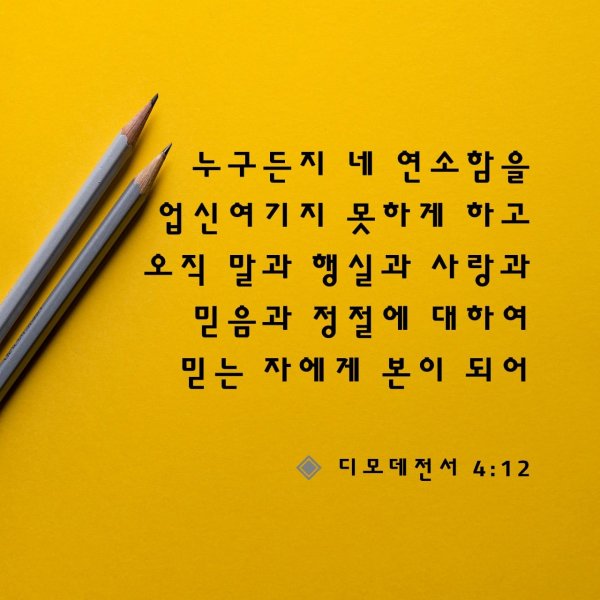 누구든지 네 연소함을
업신여기지 못하게 하고
오직 말과 행실과 사랑과
믿음과 정절에 대하여
믿는 자에게 본이 되어
디모데전서 4:12